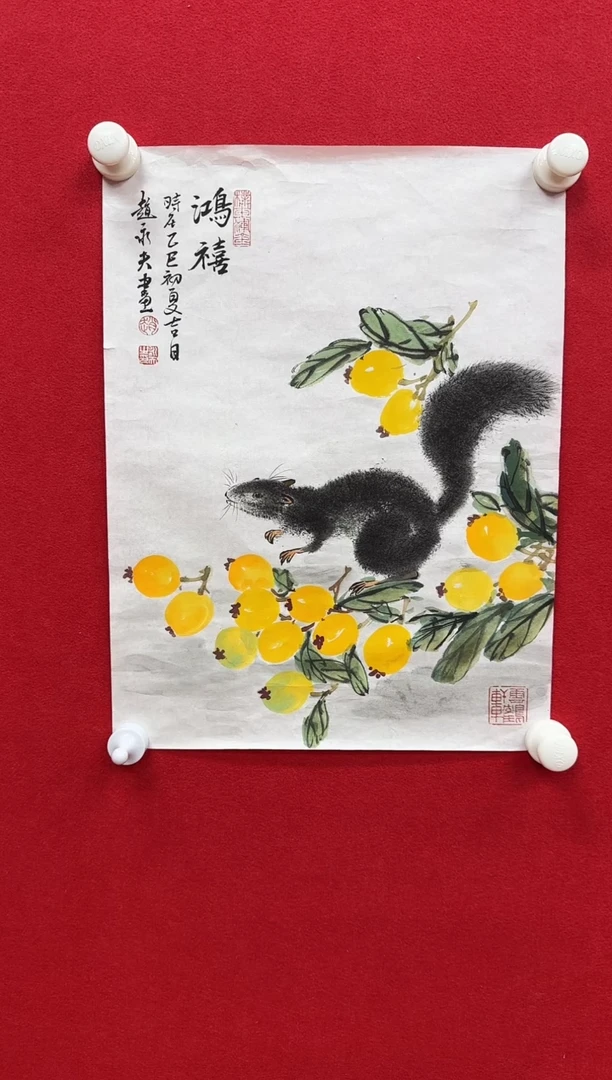 鴻禧
時在乙巳初夏吉日
趙永夫畫